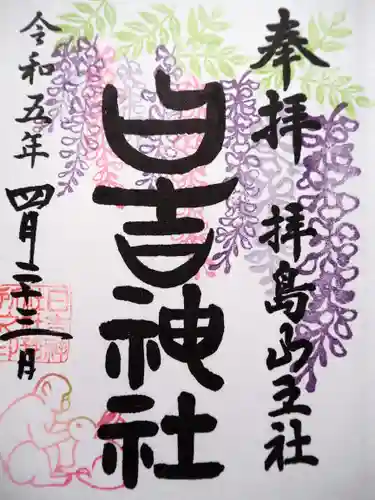 奉拝 拝島山王社
日吉神社
令和五年四月二十三日